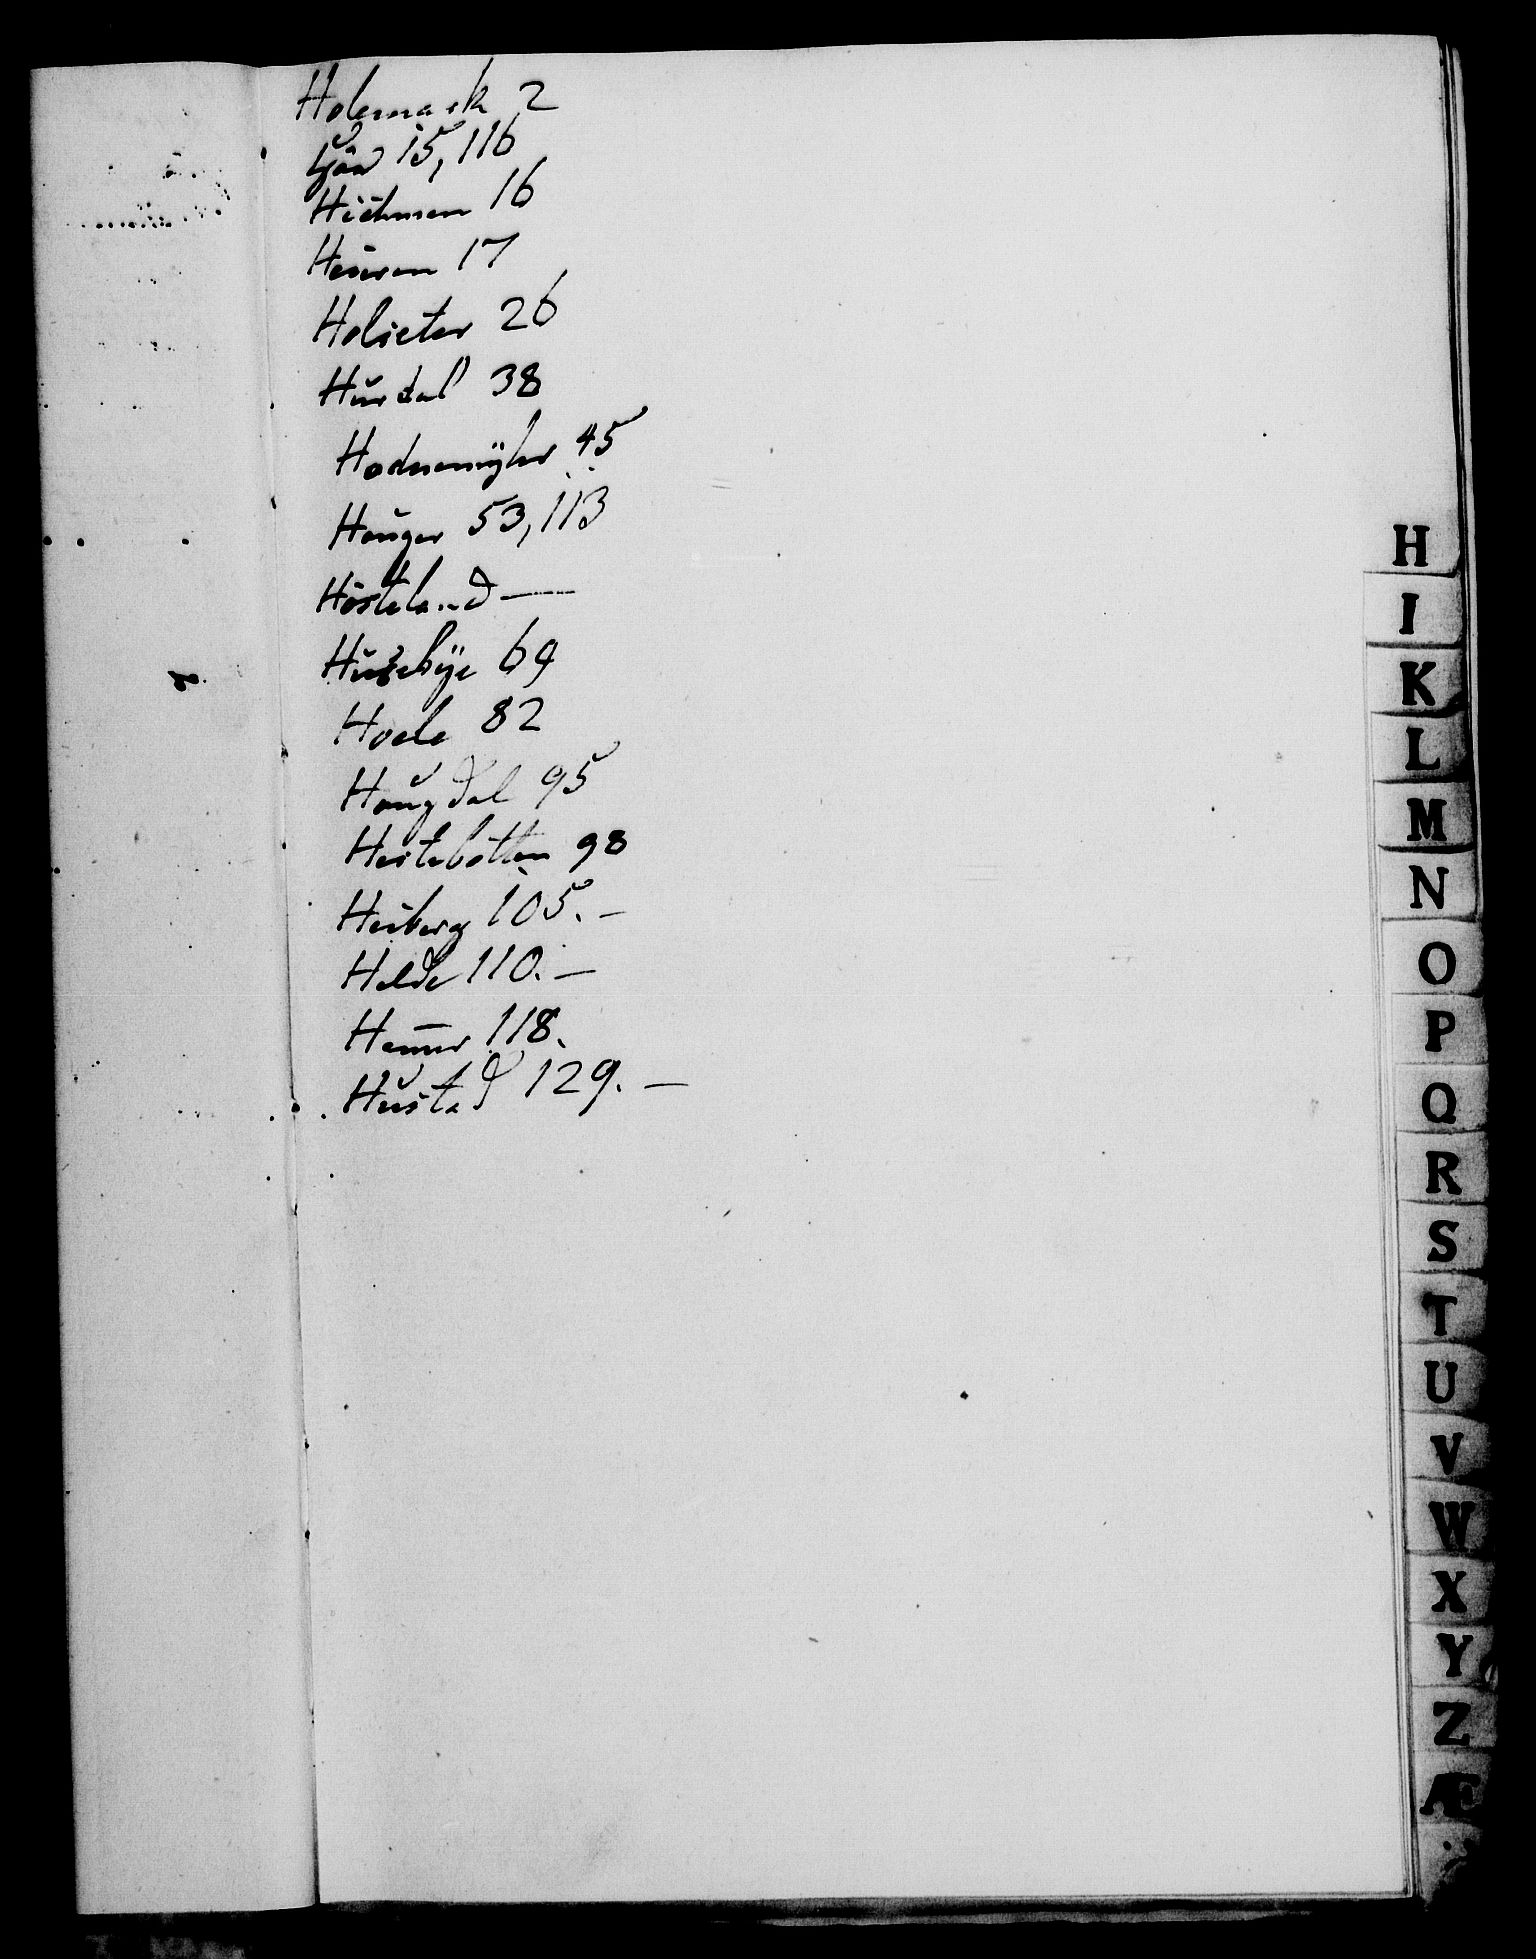 Holemark 2
Hjåa 15, 116
Hiehmen 16
Heieren 17
Holseter 26
Hurdal 38
Hodnemyhr 45
Hauger 53, 113
Hosteland —
Husebye 69
Hoele 82
Haugdal 95
Hestebotten 98
Heiberg 105. —
Helde 110. —
Hemer 118.
Hustad 129. —
H
I
K
L
M
N
O
P
Q
R
S
T
U
V
W
X
Y
Z
Æ